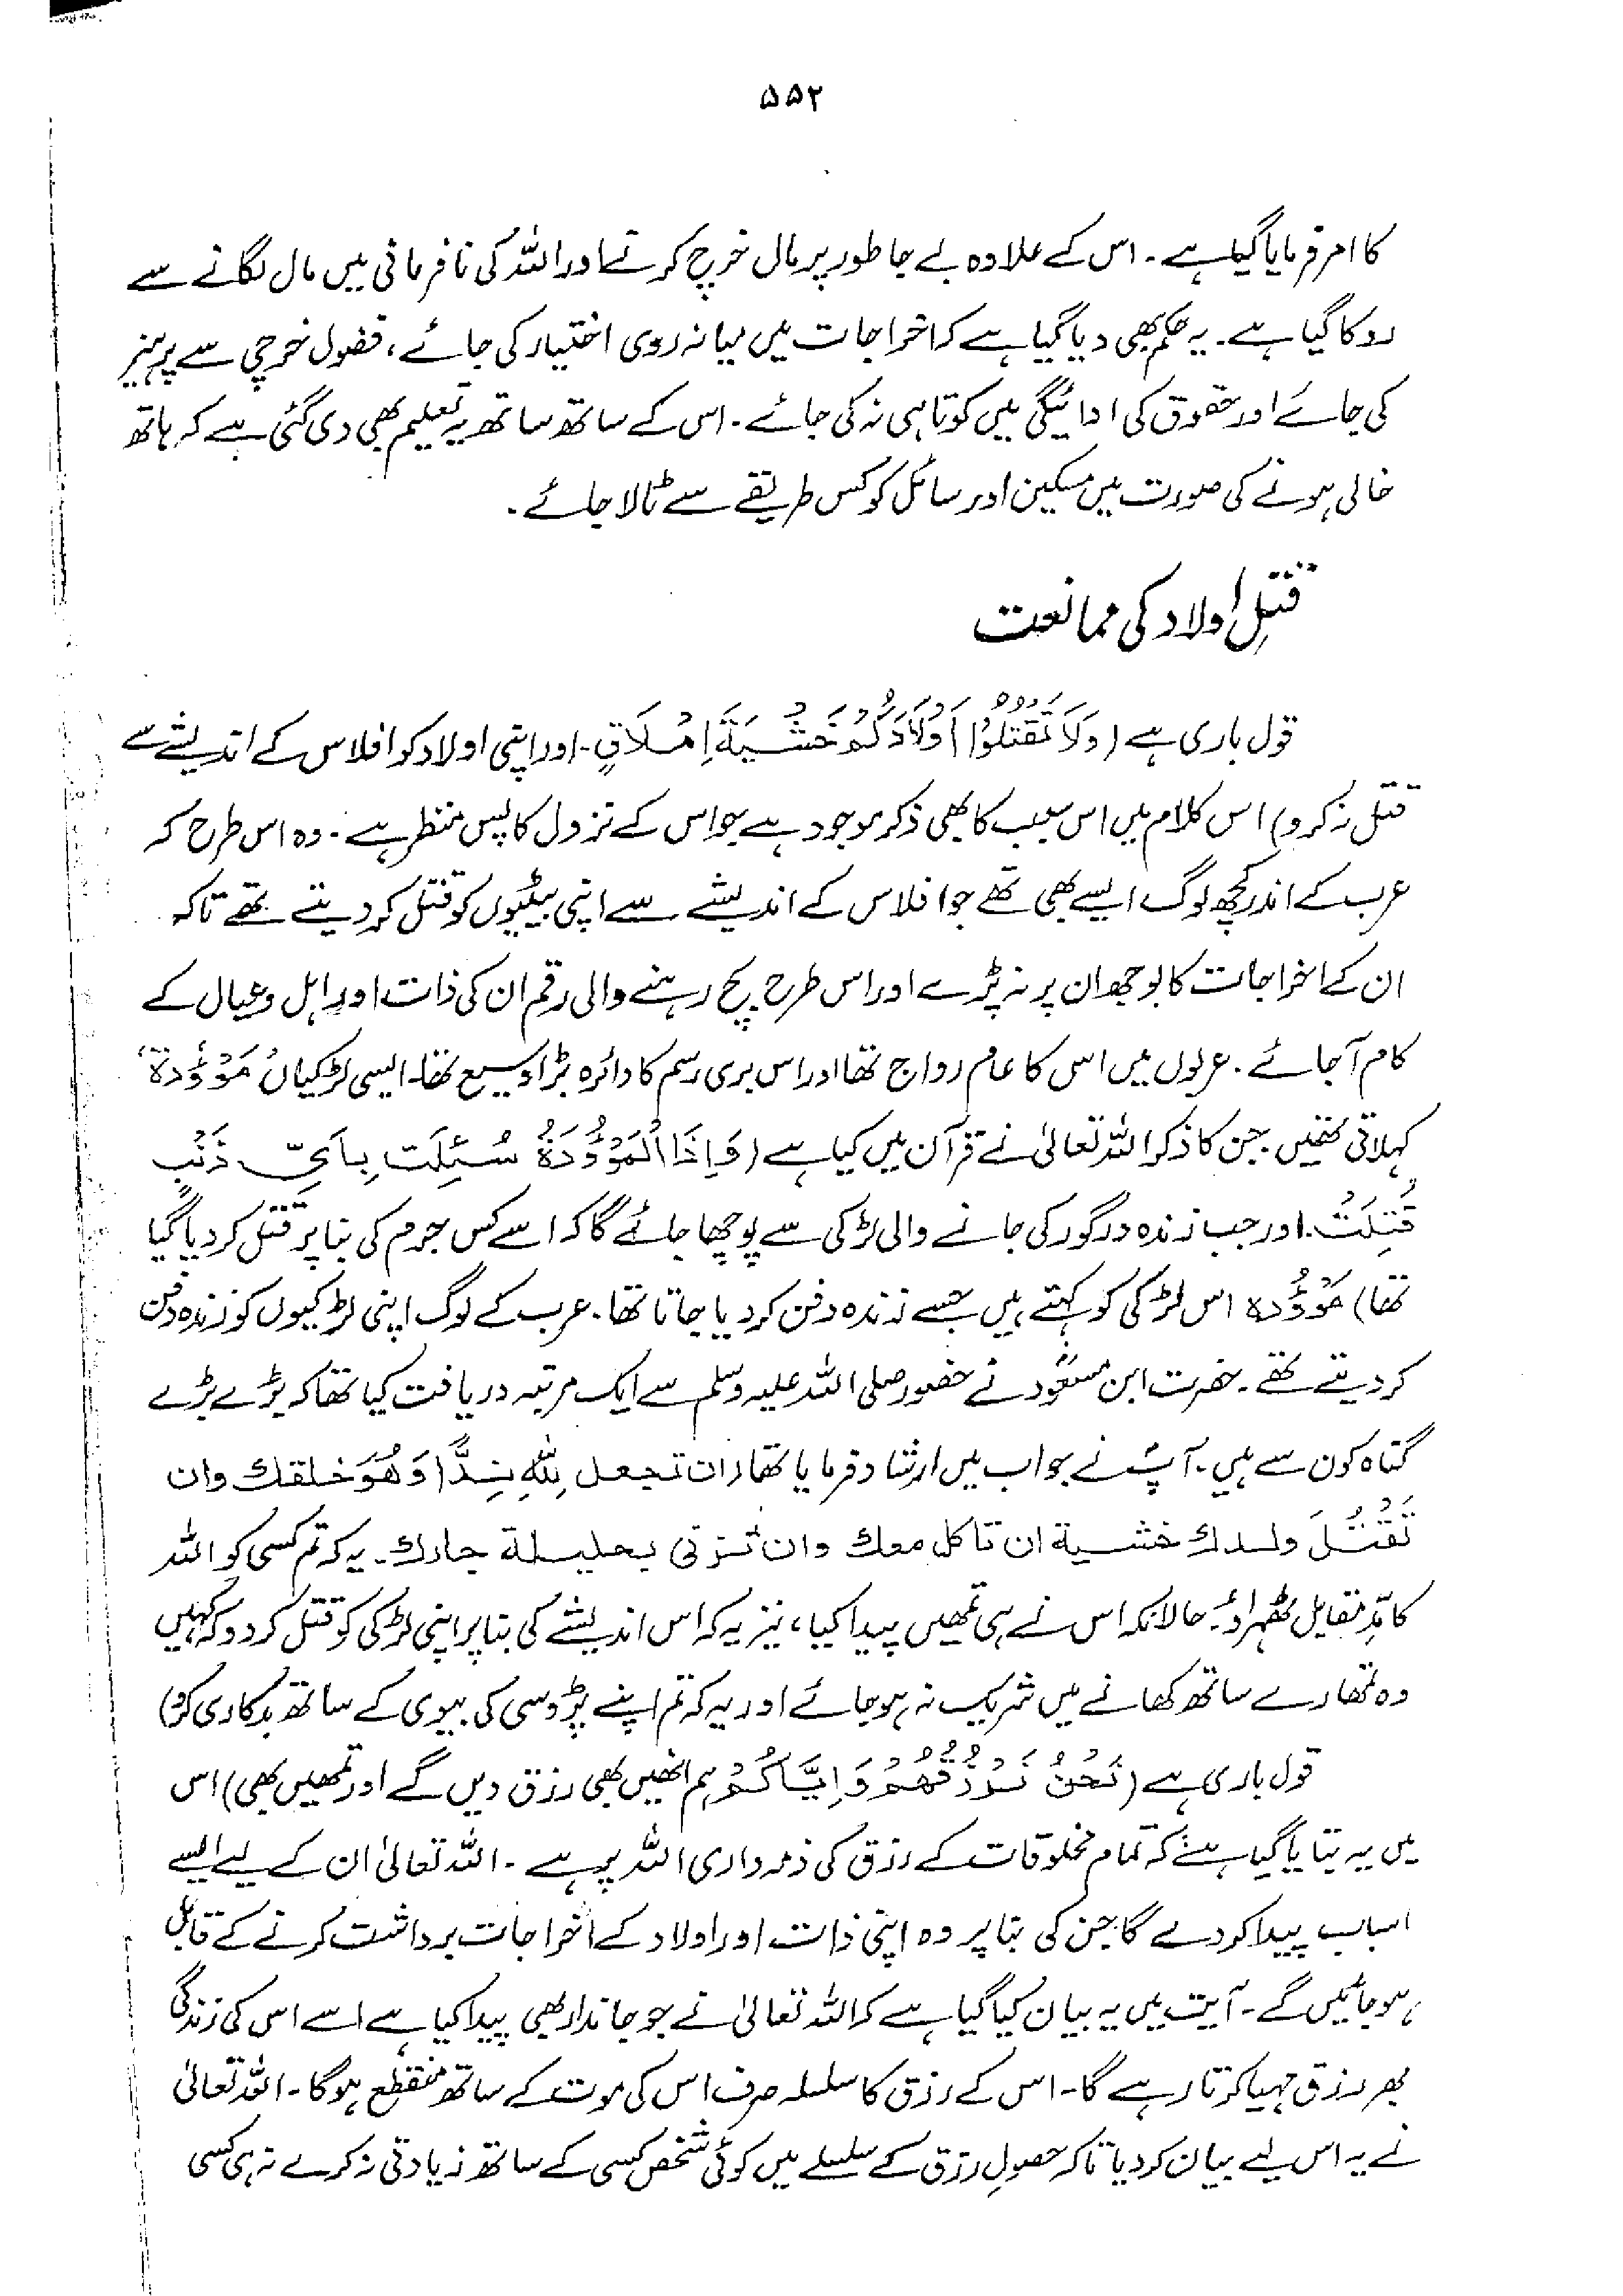 ۵۵۲
کا امر فرمایا گیا ہے۔ اس کے علاوہ بے جا طور پر مال خرچ کرنے اور اللہ کی نافرمانی میں مال لگانے سے
روکا گیا ہے۔ یہ حکم بھی دیا گیا ہے کہ اخراجات میں میانہ روی اختیار کی جائے، فضول خرچی سے پرہیز
کی جائے اور حقوق کی ادائیگی میں کوتاہی نہ کی جائے۔ اس کے ساتھ ساتھ یہ تعلیم بھی دی گئی ہے کہ ہاتھ
خالی ہونے کی صورت میں مسکین اور سائل کو کس طریقے سے ٹالا جائے۔
قتلِ اولاد کی ممانعت
قول باری ہے (وَلَا تَقْتُلُوْا اَوْلَادَكُمْ خَشْيَةَ اِمْلَاقٍ۔ اور اپنی اولاد کو افلاس کے اندیشے سے
قتل نہ کرو) اس کلام میں اس سبب کا بھی ذکر موجود ہے جو اس کے نزول کا پس منظر ہے۔ وہ اس طرح کہ
عرب کے اندر کچھ لوگ ایسے بھی تھے جو افلاس کے اندیشے سے اپنی بیٹیوں کو قتل کر دیتے تھے تاکہ
ان کے اخراجات کا بوجھ ان پر نہ پڑے اور اس طرح بچ رہنے والی رقم ان کی ذات اور اہل و عیال کے
کام آجائے۔ عربوں میں اس کا عام رواج تھا اور اس بری رسم کا دائرہ بڑا وسیع تھا۔ ایسی لڑکیاں ’مَوْؤُدَة‘
کہلاتی تھیں جن کا ذکر اللہ تعالیٰ نے قرآن میں کیا ہے (وَاِذَا الْمَوْؤُدَةُ سُئِلَت بِاَيِّ ذَنْبٍ
قُتِلَتْ۔ اور جب زندہ درگور کی جانے والی لڑکی سے پوچھا جائے گا کہ اسے کس جرم کی بنا پر قتل کر دیا گیا
تھا) مَوْؤُدہ اس لڑکی کو کہتے ہیں جسے زندہ دفن کر دیا جاتا تھا۔ عرب کے لوگ اپنی لڑکیوں کو زندہ دفن
کر دیتے تھے۔ حضرت ابن مسعودؓ نے حضور صلی اللہ علیہ وسلم سے ایک مرتبہ دریافت کیا تھا کہ بڑے بڑے
گناہ کون سے ہیں۔ آپؐ نے جواب میں ارشاد فرمایا تھا (ان تجعل لِلّٰهِ نِدًّا وَهُوَ خلقك وان
تَقْتُلَ ولدك خشية ان تاكل معك وان تزنی بحليلة جارك۔ یہ کہ تم کسی کو اللہ
کا مدِّ مقابل ٹھہراؤ۔ حالانکہ اس نے ہی تمھیں پیدا کیا، نیز یہ کہ اس اندیشے کی بنا پر اپنی لڑکی کو قتل کر دو کہ کہیں
وہ تمھارے ساتھ کھانے میں شریک نہ ہو جائے اور یہ کہ تم اپنے پڑوسی کی بیوی کے ساتھ بدکاری کرو)
قول باری ہے (نَحْنُ نَرْزُقُهُمْ وَاِيَّاكُمْ ہم انھیں بھی رزق دیں گے اور تمھیں بھی) اس
میں یہ بتایا گیا ہے کہ تمام مخلوقات کے رزق کی ذمہ داری اللہ پر ہے۔ اللہ تعالیٰ ان کے لیے ایسے
اسباب پیدا کر دے گا جن کی بنا پر وہ اپنی ذات اور اولاد کے اخراجات برداشت کرنے کے قابل
ہو جائیں گے۔ آیت میں یہ بیان کیا گیا ہے کہ اللہ تعالیٰ نے جو جاندار بھی پیدا کیا ہے اسے اس کی زندگی
بھر رزق مہیا کرتا رہے گا۔ اس کے رزق کا سلسلہ صرف اس کی موت کے ساتھ منقطع ہوگا۔ اللہ تعالیٰ
نے یہ اس لیے بیان کر دیا تاکہ حصولِ رزق کے سلسلے میں کوئی شخص کسی کے ساتھ زیادتی نہ کرے نہ ہی کسی